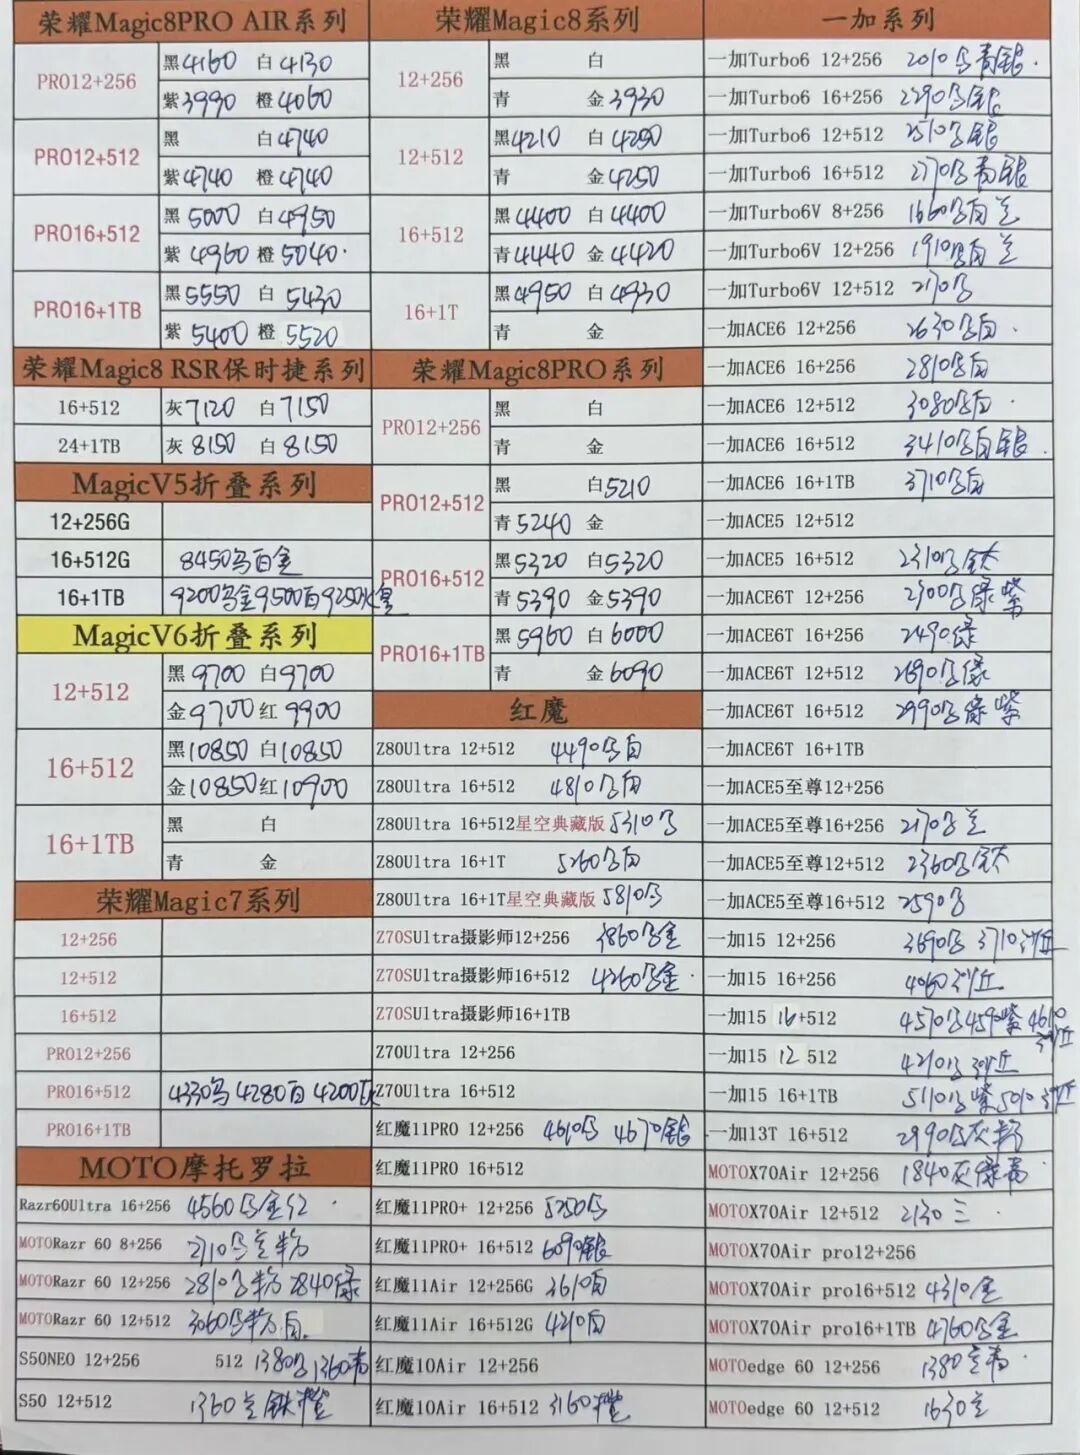 荣耀Magic8PRO AIR系列
PRO12+256 黑4160 白4130
紫3990 橙4060
PRO12+512 黑 白4740
紫4740 橙4740
PRO16+512 黑5000 白4950
紫4960 橙5040
PRO16+1TB 黑5550 白5430
紫5400 橙5520
荣耀Magic8 RSR保时捷系列
16+512 灰7120 白7150
24+1TB 灰8150 白8150
MagicV5折叠系列
12+256G
16+512G 8450 白金
16+1TB 9200 金9500白9250
MagicV6折叠系列
12+512 黑9700 白9700
金9700 红9900
16+512 黑10850 白10850
金10850 红10900
16+1TB 黑 白
青 金
荣耀Magic7系列
12+256
12+512
16+512
PRO12+256
PRO16+512 4330 4280白 4200
PRO16+1TB
MOTO摩托罗拉
Razr60Ultra 16+256 4560 金红
MOTORazr 60 8+256 2710
MOTORazr 60 12+256 2810 粉 2840绿
MOTORazr 60 12+512 3060 粉 白
S50NEO 12+256 512 1380 1360青
S50 12+512 1360 橙
荣耀Magic8系列
12+256 黑 白
青 金3930
12+512 黑4210 白4250
青 金4250
16+512 黑4400 白4400
青4440 金4420
16+1T 黑4950 白4930
青 金
荣耀Magic8PRO系列
PRO12+256 黑 白
青 金
PRO12+512 黑 白5210
青5240 金
PRO16+512 黑5320 白5320
青5390 金5390
PRO16+1TB 黑5960 白6000
青 金6090
红魔
Z80Ultra 12+512 4490 白
Z80Ultra 16+512 4810 白
Z80Ultra 16+512星空典藏版 5310
Z80Ultra 16+1T 5260 白
Z80Ultra 16+1T星空典藏版 5810
Z70SUltra摄影师12+256 3860 金
Z70SUltra摄影师16+512 4260 金
Z70SUltra摄影师16+1TB
Z70Ultra 12+256
Z70Ultra 16+512
红魔11PRO 12+256 4610 4670银
红魔11PRO 16+512
红魔11PRO+ 12+256 5250
红魔11PRO+ 16+512 6090银
红魔11Air 12+256G 3610白
红魔11Air 16+512G 4210白
红魔10Air 12+256
红魔10Air 16+512 3160橙
一加系列
一加Turbo6 12+256 2010 青银
一加Turbo6 16+256 2290 银
一加Turbo6 12+512 2510 银
一加Turbo6 16+512 2770 青银
一加Turbo6V 8+256 1660 白兰
一加Turbo6V 12+256 1910 白兰
一加Turbo6V 12+512 2170
一加ACE6 12+256 2630 白
一加ACE6 16+256 2810 白
一加ACE6 12+512 3080 白
一加ACE6 16+512 3410 白银
一加ACE6 16+1TB 3710 白
一加ACE5 12+512
一加ACE5 16+512 2310 钛
一加ACE6T 12+256 2300 绿紫
一加ACE6T 16+256 2490绿
一加ACE6T 12+512 2690 绿
一加ACE6T 16+512 2990 绿紫
一加ACE6T 16+1TB
一加ACE5至尊12+256
一加ACE5至尊16+256 2170 兰
一加ACE5至尊12+512 2360 钛
一加ACE5至尊16+512 2590
一加15 12+256 3690 3710沙丘
一加15 16+256 4060沙丘
一加15 16+512 4570 4590紫 4610沙丘
一加15 12 512 4210 沙丘
一加15 16+1TB 5110 紫5010沙丘
一加13T 16+512 2990 灰粉
MOTOX70Air 12+256 1840灰绿青
MOTOX70Air 12+512 2130三
MOTOX70Air pro12+256
MOTOX70Air pro16+512 4310金
MOTOX70Air pro16+1TB 4760 金
MOTOedge 60 12+256 1380 青
MOTOedge 60 12+512 1630